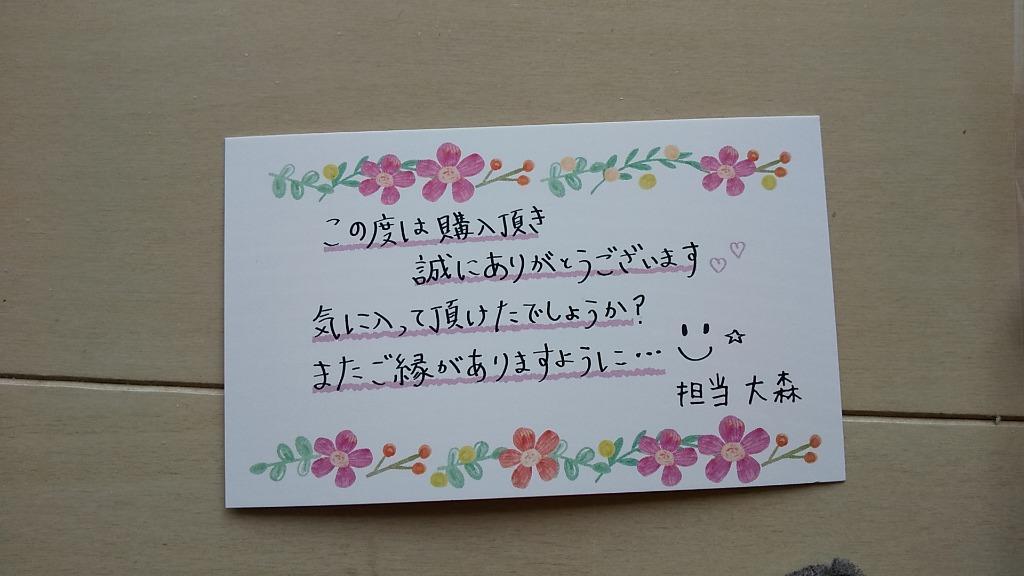 この度は購入頂き
誠にありがとうございます♡♡
気に入って頂けたでしょうか?
またご縁がありますように…☆
担当 大森